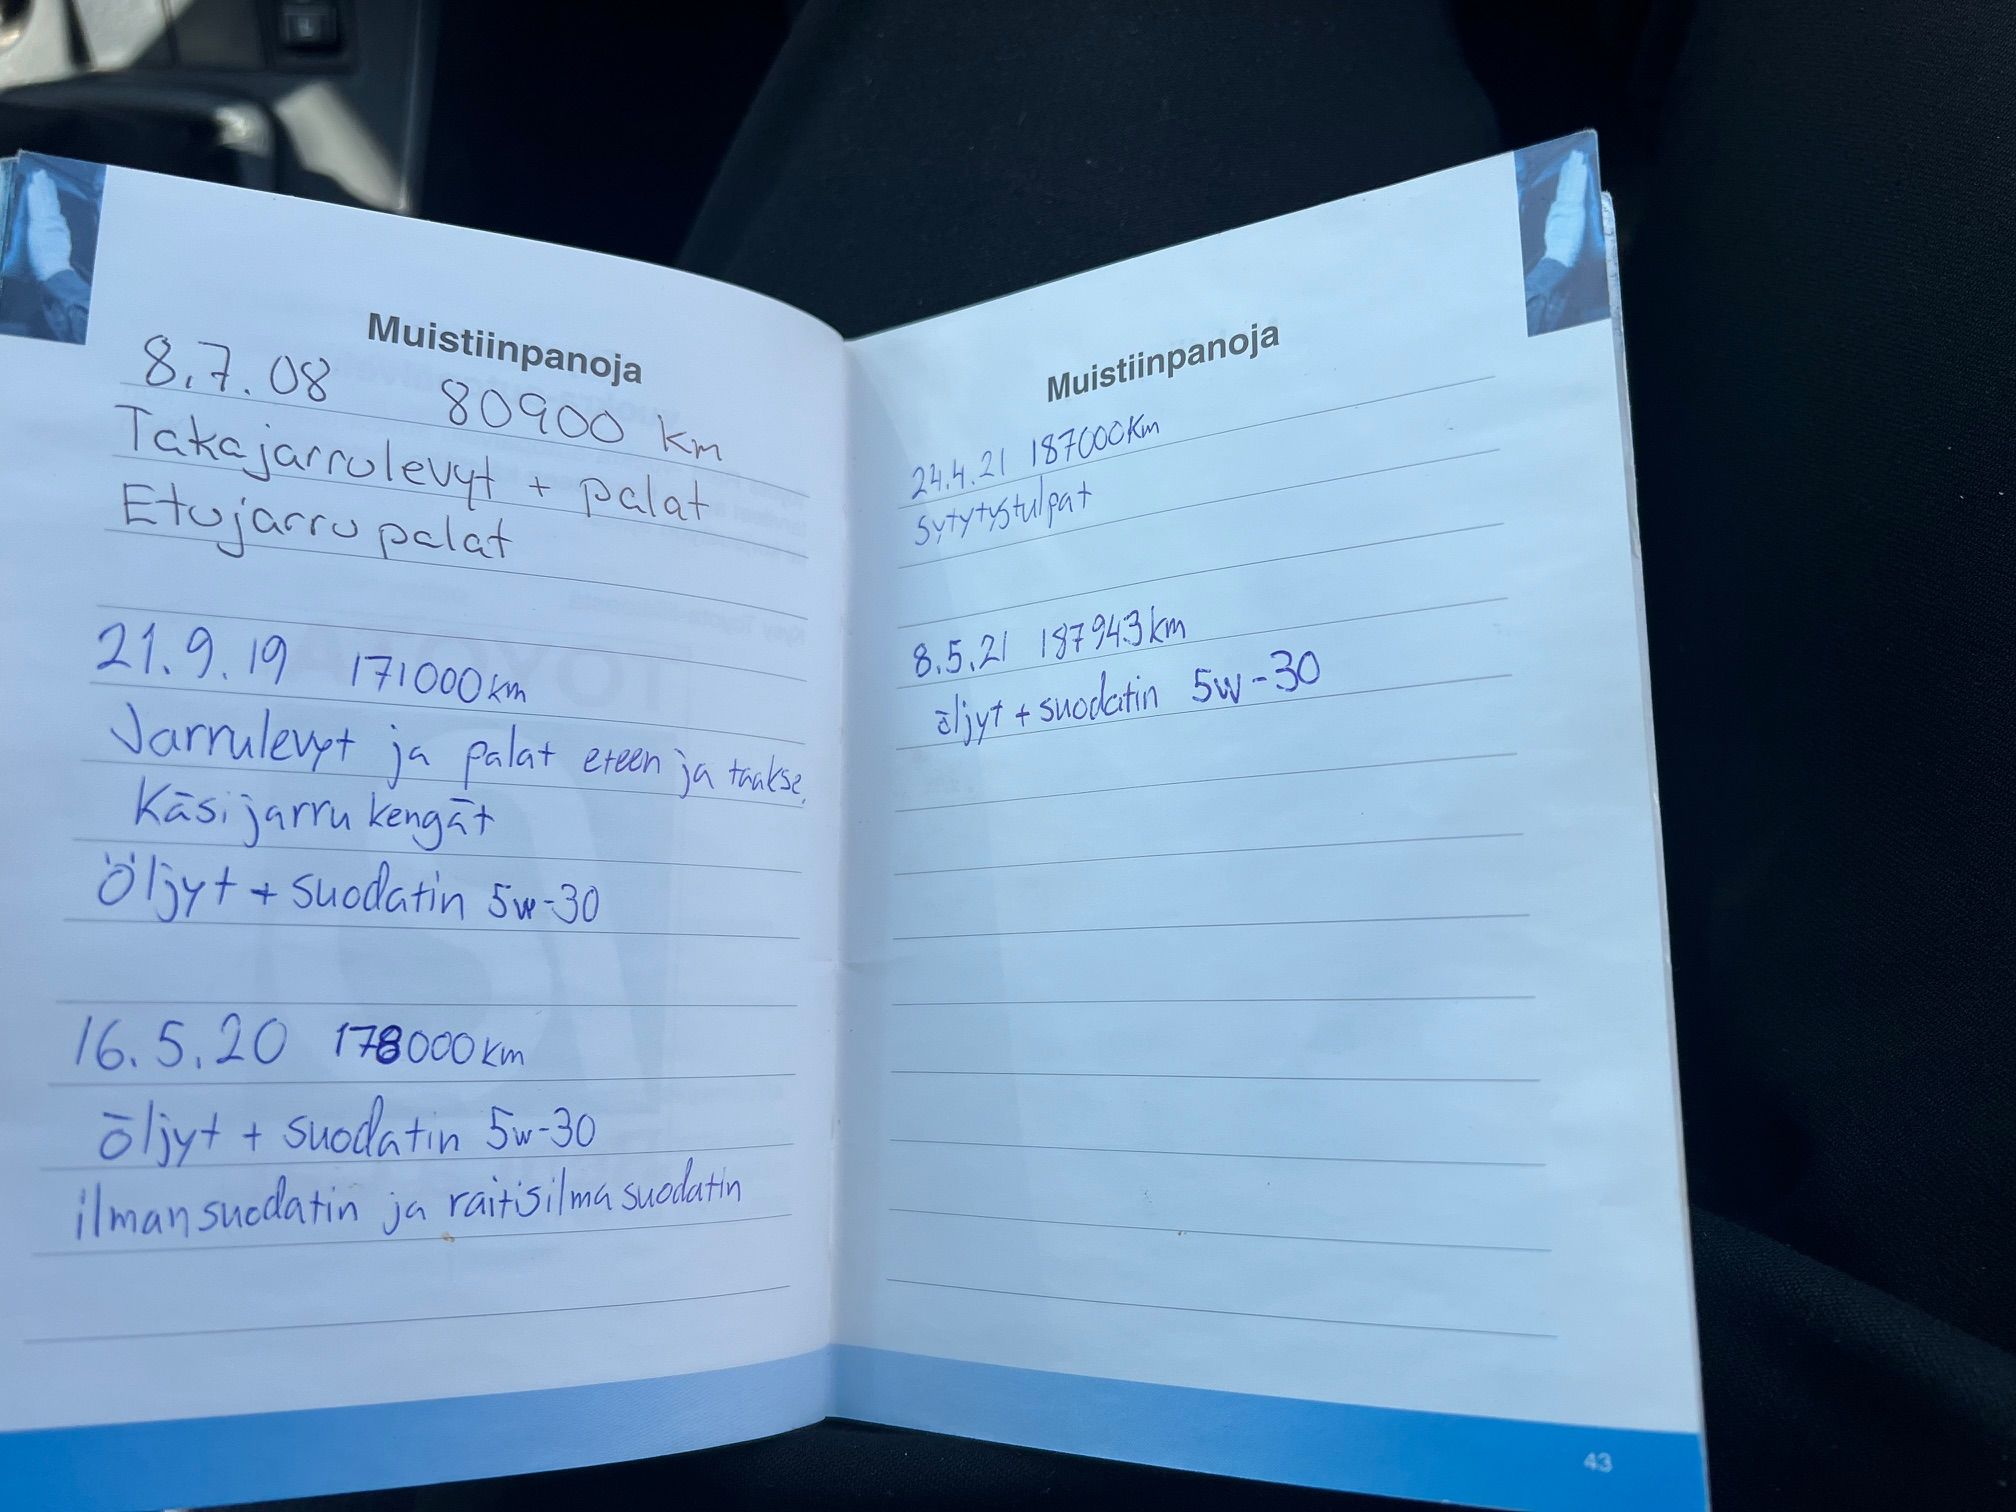 Muistiinpanoja
8.7.08 80900 km
Takajarrulevyt + palat
Etujarrupalat
21.9.19 171000km
Jarrulevyt ja palat eteen ja taakse,
Käsijarru kengät
Öljyt + suodatin 5w-30
16.5.20 178000km
öljyt + suodatin 5w-30
ilmansuodatin ja raitisilmasuodatin
Muistiinpanoja
24.4.21 187000km
Sytytystulpat
8.5.21 187943km
öljyt + suodatin 5w-30
43